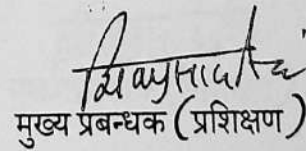 मुख्य प्रबन्धक ( प्रशिक्षण )